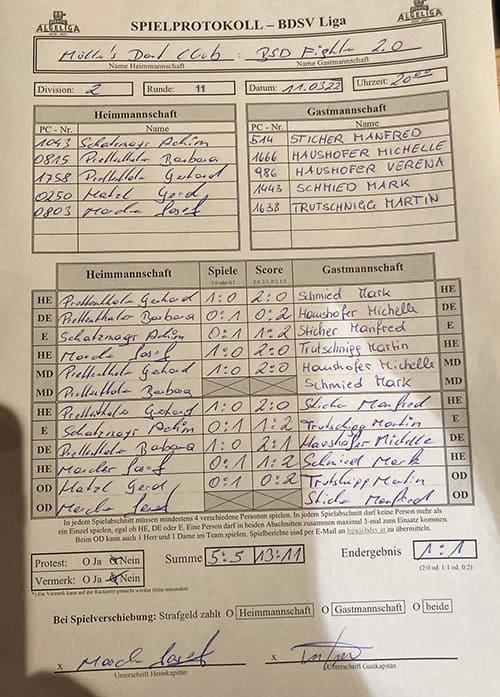 ALGELIGA
SPIELPROTOKOLL – BDSV Liga
ALGELIGA
Dart Club : BSD Fighter 2.0
Name Heimmannschaft Name Gastmannschaft
Division: 2 Runde: 11 Datum: 11.03.22 Uhrzeit: 20⁰⁰
Heimmannschaft Gastmannschaft
PC - Nr. Name PC - Nr. Name
1043 Schatzmayr Achim 514 STICHER MANFRED
0815 Prettenthaler Barbara 1666 HAUSHOFER MICHELLE
1758 Prettenthaler Gerhard 986 HAUSHOFER VERENA
0250 Hatzl Gerd 1443 SCHMIED MARK
0803 Josef 1638 TRUTSCHNIGG MARTIN
Heimmannschaft Spiele Score Gastmannschaft
1:0 oder 0:1 2:0, 2:1, 0:2, 1:2
HE Prettenthaler Gerhard 1:0 2:0 Schmied Mark HE
DE Prettenthaler Barbara 0:1 0:2 Haushofer Michelle DE
E Schatzmayr Achim 0:1 1:2 Sticher Manfred E
HE Josef 1:0 2:0 Trutschnigg Martin HE
MD Prettenthaler Gerhard 1:0 2:0 Haushofer Michelle MD
MD Prettenthaler Barbara Schmied Mark MD
HE Prettenthaler Gerhard 1:0 2:0 Sticher Manfred HE
E Schatzmayr Achim 0:1 1:2 Trutschnigg Martin E
DE Prettenthaler Barbara 1:0 2:1 Haushofer Michelle DE
HE Josef 0:1 1:2 Schmied Mark HE
OD Hatzl Gerd 0:1 0:2 Trutschnigg Martin OD
OD Josef Sticher Manfred OD
In jedem Spielabschnitt müssen mindestens 4 verschiedene Personen spielen. In jedem Spielabschnitt darf keine Person mehr als
ein Einzel spielen, egal ob HE, DE oder E. Eine Person darf in beiden Abschnitten zusammen maximal 3-mal zum Einsatz kommen.
Beim OD kann auch 1 Herr und 1 Dame im Team spielen. Spielberichte sind per E-Mail an liga@bdsv.at zu übermitteln.
Protest: O Ja O Nein Summe 5:5 13:11 Endergebnis 1:1
Vermerk: O Ja O Nein (2:0 od. 1:1 od. 0:2)
*) Ein Vermerk kann auf der Rückseite gemacht werden (bitte mitsenden)
Bei Spielverschiebung: Strafgeld zahlt O Heimmannschaft O Gastmannschaft O beide
x Josef x
Unterschrift Heimkapitän Unterschrift Gastkapitän